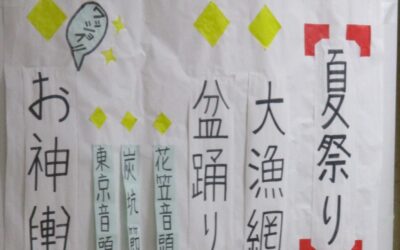 夏祭り
大漁網
盆踊り
花笠音頭
炭坑節
東京音頭
お神輿